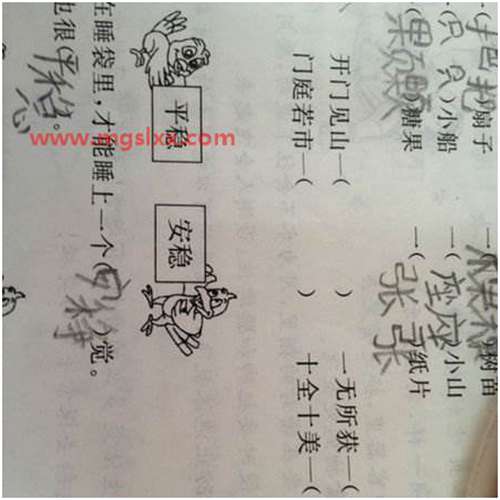 一(把把)扇子 一(棵棵)树苗
一(只只)小船 一(座座)小山
(颗颗)糖果 一(张张)纸片
开门见山—( ) 一无所获—(
门庭若市—( ) 十全十美—(
平稳 安稳
在睡袋里，才能睡上一个(安稳)觉。
也很(平稳)。
www.mgslxx.com